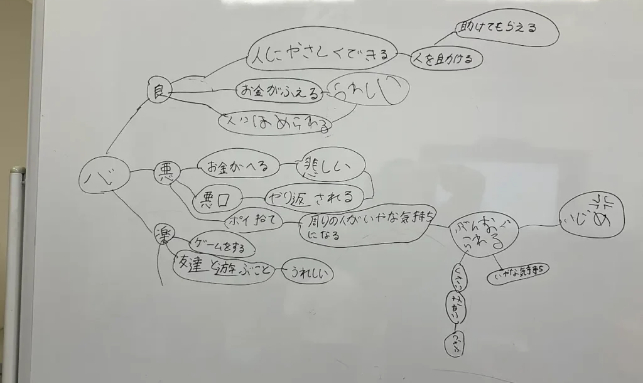 助けてもらえる
人にやさしくできる
人を助ける
良
お金がふえる
うれしい
人にほめられる
心
悪
お金がへる
悲しい
悪口
やり返される
ポイ捨て
周りの人がいやな気持ち
になる
いじめ
いやな気持ち
楽
ゲームをする
友達と遊ぶこと
うれしい